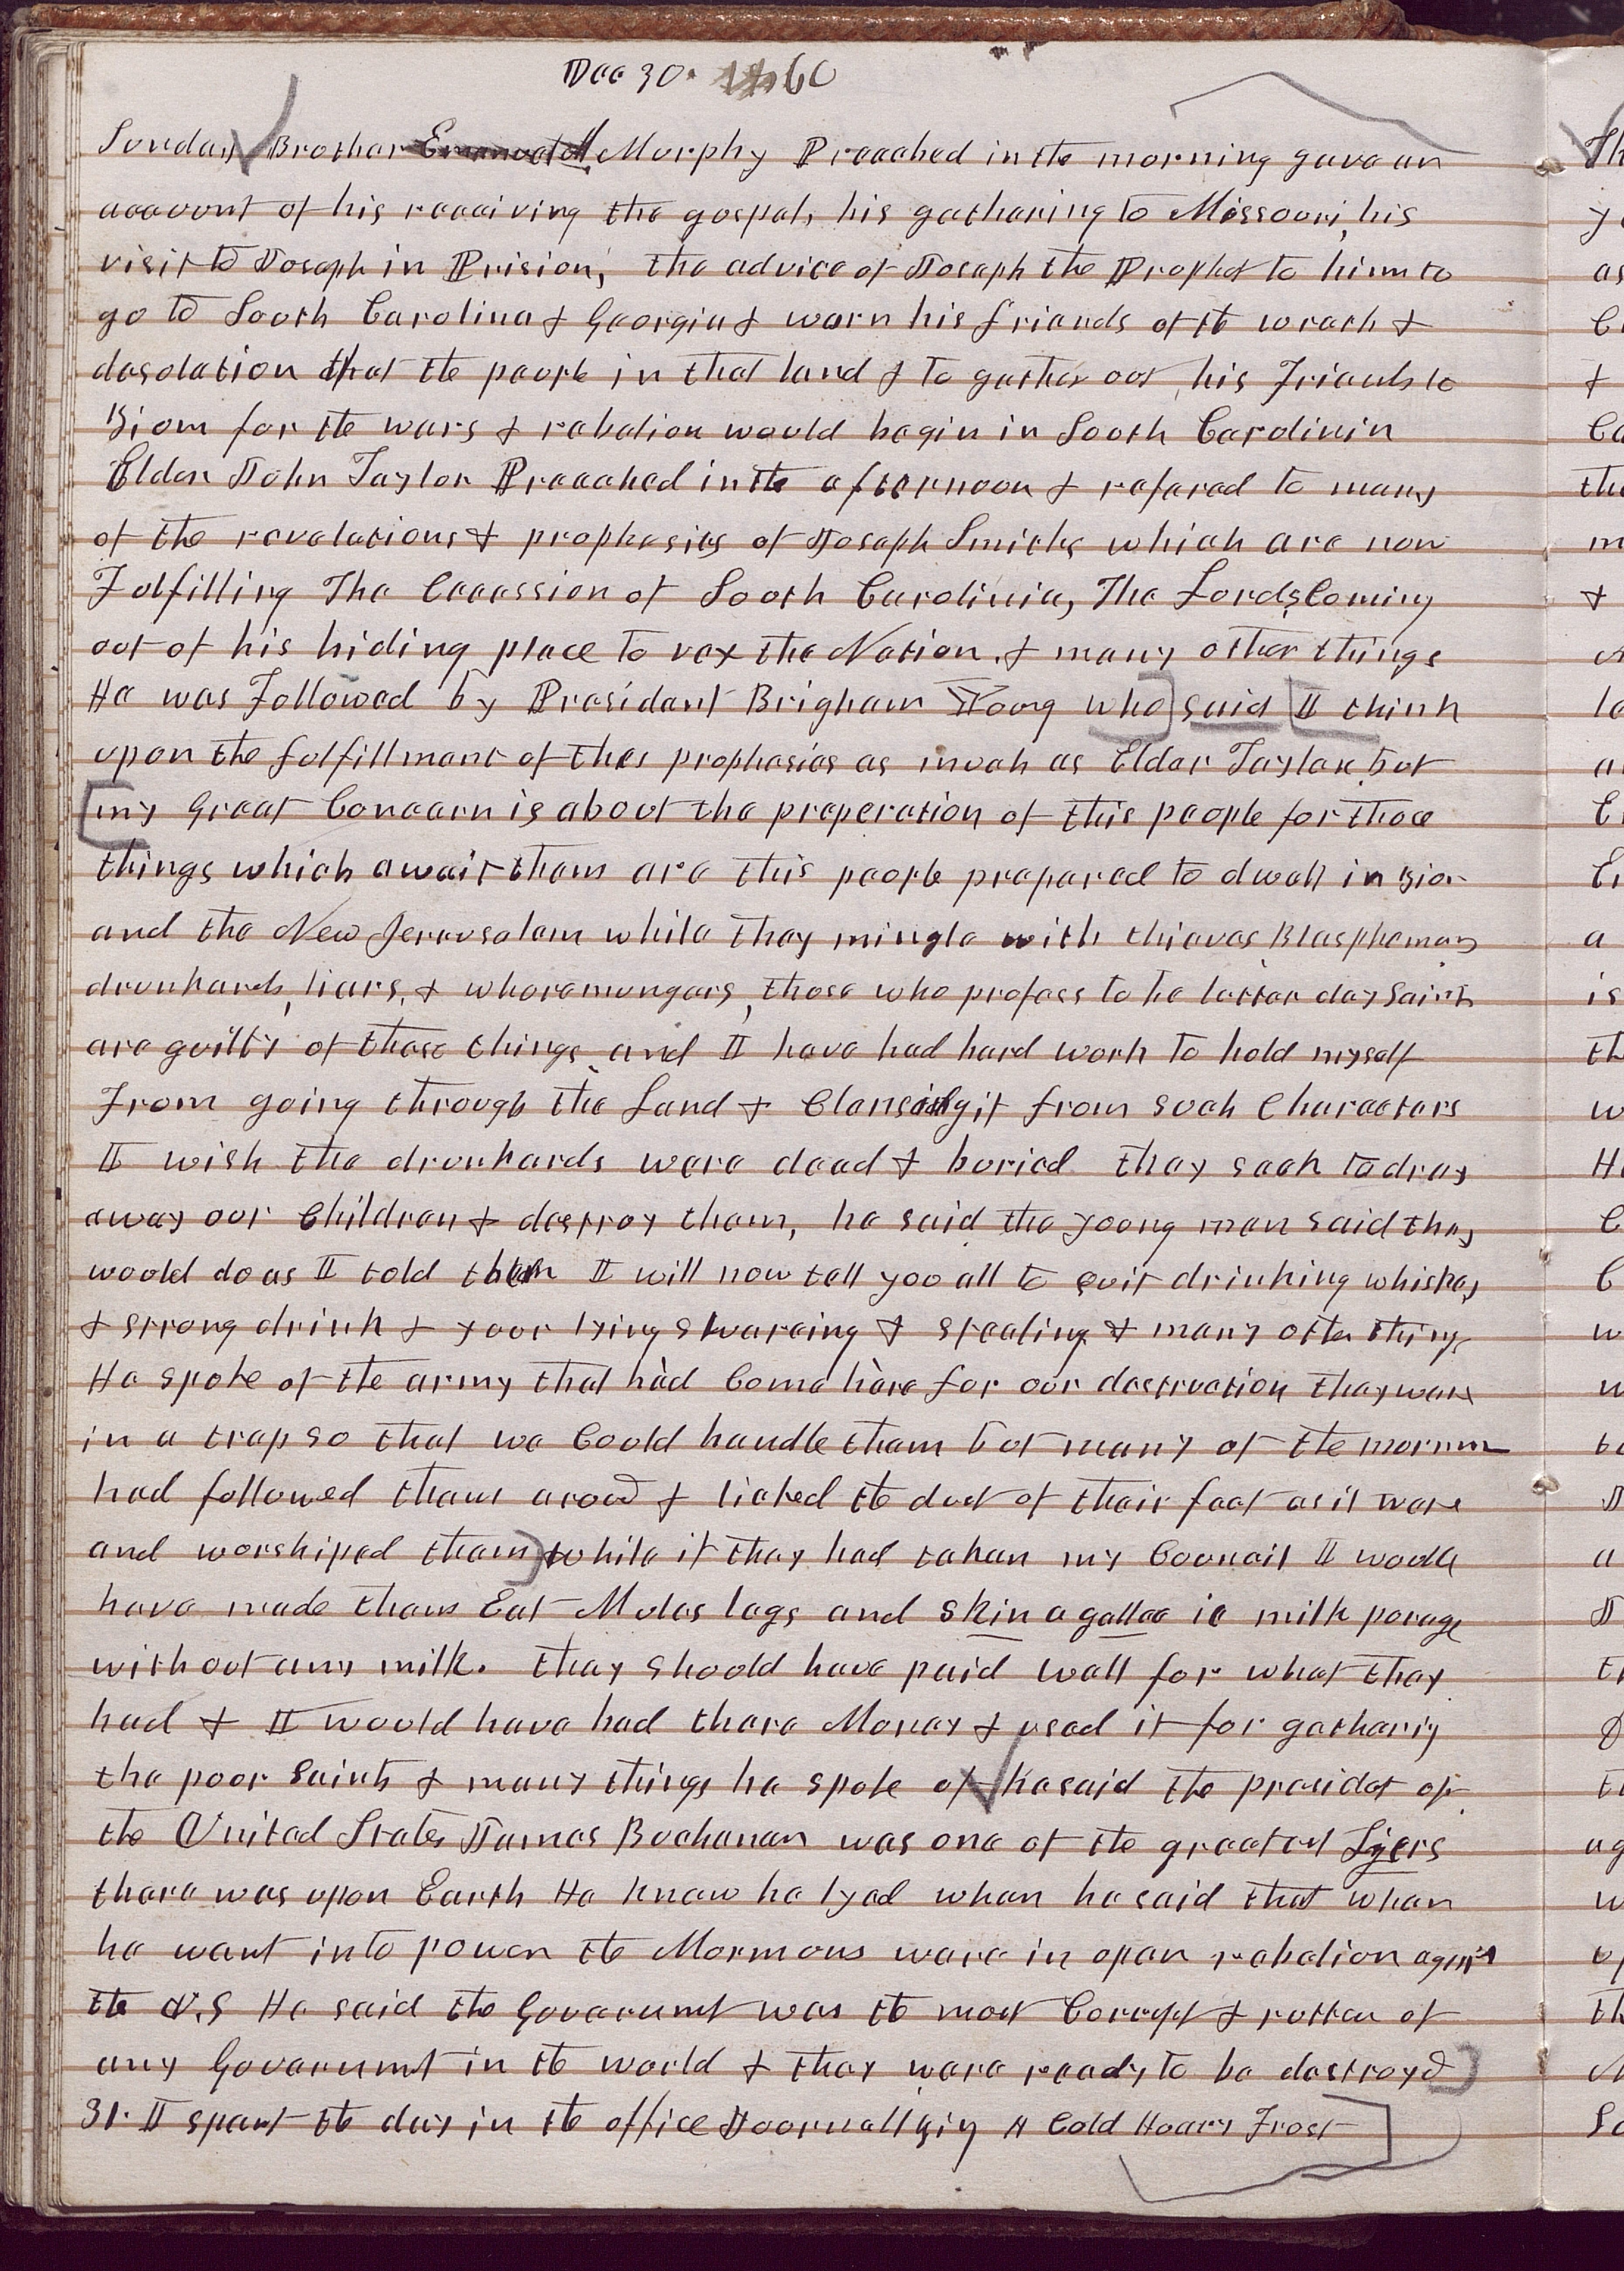 Dec 30. 1860
Sunday Brother Emanuel Murphy Preached in the morning gave an
account of his receiving the gospel, his gathering to Missouri, his
visit to Joseph in Prision, the advice of Joseph the Prophet to him to
go to South Carolina & Georgia & warn his friends of the wrath &
desolation that the people in that land & to gather out his Friends to
Zion for the wars & rebelion would begin in South Carolinia
Elder John Taylor Preached in the afternoon & refered to many
of the revelations & prophesies of Joseph Smiths which are now
Fulfilling The Cecession of South Carolinia, The Lords Coming
out of his hiding place to vex the Nation. & many other things
He was Followed by President Brigham Young who] said [I think
upon the fulfillment of thes prophesies as much as Elder Taylor but
[my great Concern is about the preperation of this people for those
things which await them are this people prepared to dwell in Zion
and the New Jerusalem while they mingle with thieves Blasphemers
drunkards, liars, & whoremungers, those who profess to be latter day Saints
are guilty of these things and I have had hard work to hold myself
From going through the Land & Clensing it from such Characters
I wish the drunkards were dead & buried they seek to dray
away our Children & destroy them, he said the young men said they
would do as I told them I will now tell you all to quit drinking whiskey
& strong drink & your lying swareing & stealing & many other things
He spoke of the army that had Come here for our destruction they ware
in a trap so that we Could handle them but many of the mormon
had followed them aroud & licked the dust of their feet as it ware
and worshiped them] while if they had taken my Council I would
have made them Eat Mules legs and skin a gallee ie milk porage
without any milk. they should have paid well for what they
had & I would have had there Money & used it for gatherig
the poor Saints & many things he spoke of he said the presidet of
the United States James Buchanan was one of the greatest Lyers
there was upon Earth He knew he lyed when he said that when
he went into power the Mormons ware in open rebelion against
the U.S He said the Goverumt was the most Corrupt & rotten of
any Goverumt in the world & they ware ready to be destroyd]
31. I spent the day in the office Journallizig A Cold Hoary Frost]